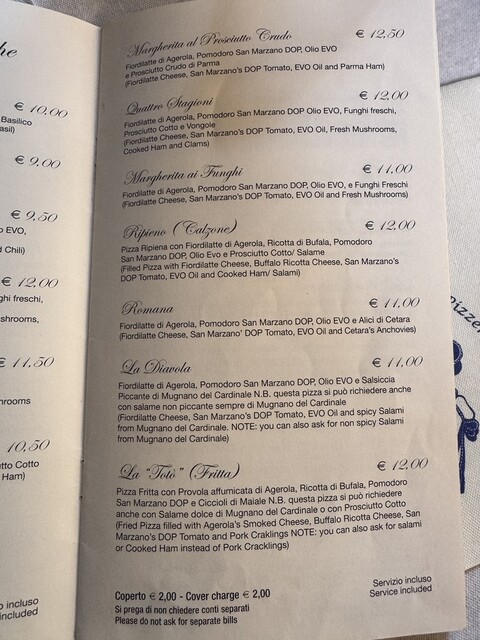 he
€ 10,00
Basilico
asil)
€ 9,00
€ 9,50
EVO,
d Chili)
€ 12,00
ghi freschi,
shrooms,
€ 11,50
hrooms
10,50
tto Cotto
Ham)
o incluso
included
Margherita al Prosciutto Crudo € 12,50
Fiordilatte di Agerola, Pomodoro San Marzano DOP, Olio EVO
e Prosciutto Crudo di Parma
(Fiordilatte Cheese, San Marzano's DOP Tomato, EVO Oil and Parma Ham)
Quattro Stagioni € 12,00
Fiordilatte di Agerola, Pomodoro San Marzano DOP Olio EVO, Funghi freschi,
Prosciutto Cotto e Vongole
(Fiordilatte Cheese, San Marzano's DOP Tomato, EVO Oil, Fresh Mushrooms,
Cooked Ham and Clams)
Margherita ai Funghi € 11,00
Fiordilatte di Agerola, Pomodoro San Marzano DOP, Olio EVO, e Funghi Freschi
(Fiordilatte Cheese, San Marzano's DOP Tomato, EVO Oil and Fresh Mushrooms)
Ripieno (Calzone) € 12,00
Pizza Ripiena con Fiordilatte di Agerola, Ricotta di Bufala, Pomodoro
San Marzano DOP, Olio Evo e Prosciutto Cotto/ Salame
(Filled Pizza with Fiordilatte Cheese, Buffalo Ricotta Cheese, San Marzano's
DOP Tomato, EVO Oil and Cooked Ham/ Salami)
Romana € 11,00
Fiordilatte di Agerola, Pomodoro San Marzano DOP, Olio EVO e Alici di Cetara
(Fiordilatte Cheese, San Marzano' DOP Tomato, EVO Oil and Cetara's Anchovies)
La Diavola € 11,00
Fiordilatte di Agerola, Pomodoro San Marzano DOP, Olio EVO e Salsiccia
Piccante di Mugnano del Cardinale N.B. questa pizza si può richiedere anche
con salame non piccante sempre di Mugnano del Cardinale
(Fiordilatte Cheese, San Marzano's DOP Tomato, EVO Oil and spicy Salami
from Mugnano del Cardinale. NOTE: you can also ask for non spicy salami
from Mugnano del Cardinale)
La "Totò" (Fritta) € 12,00
Pizza Fritta con Provola affumicata di Agerola, Ricotta di Bufala, Pomodoro
San Marzano DOP e Ciccioli di Maiale N.B. questa pizza si può richiedere
anche con Salame dolce di Mugnano del Cardinale o con Prosciutto Cotto
(Fried Pizza filled with Agerola's Smoked Cheese, Buffalo Ricotta Cheese, San
Marzano's DOP Tomato and Pork Craklings NOTE: you can also ask for salami
or Cooked Ham instead of Pork Cracklings)
Coperto € 2,00 - Cover charge € 2,00
Si prega di non chiedere conti separati
Please do not ask for separate bills
Servizio incluso
Service included
pizze